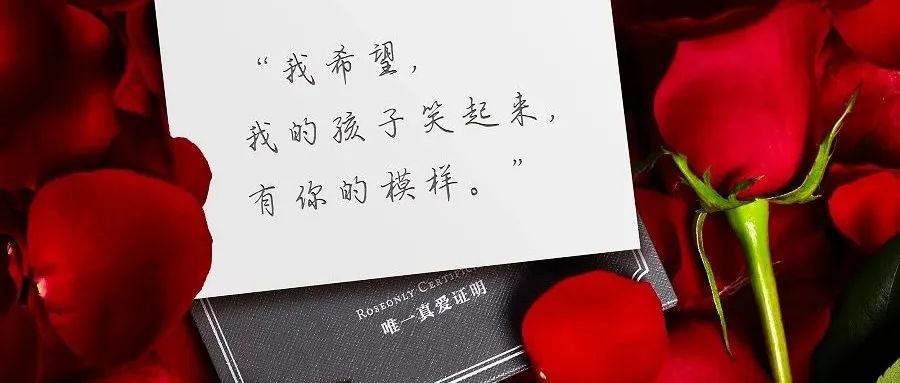 “我希望，
我的孩子笑起来，
有你的模样。”
ROSEONLY CERTIFIC
唯一真爱证明